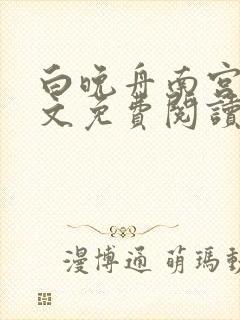 白晚舟南宮
文免費閱讀
漫博通 萌瑪動